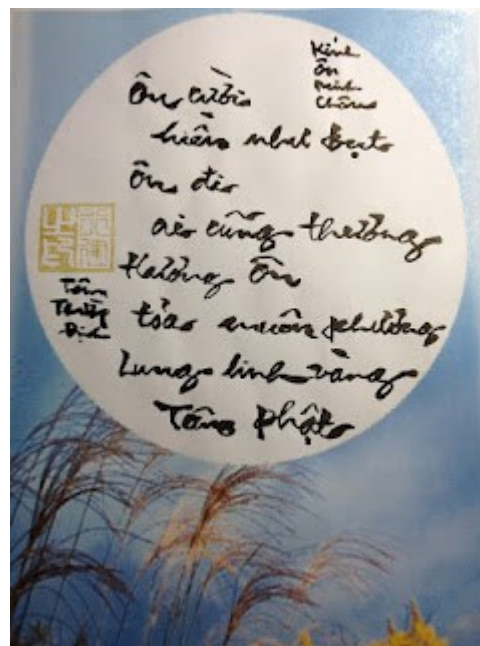 Kính
Ôn
Minh
Châu
Ôn cười
hiền như Bụt
Ôn đi
ai cũng thương
Hương Ôn
tỏa muôn phương
Lung linh vàng
Tâm Phật
Tâm
Thường
Định